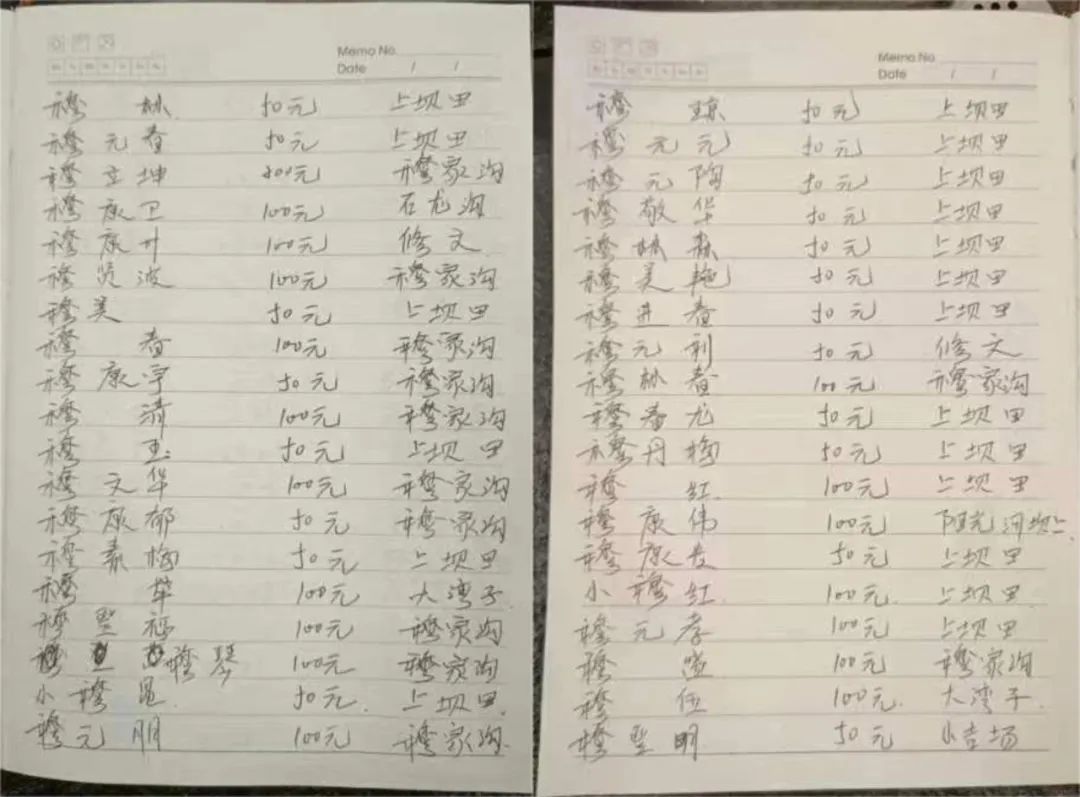 Memo No.
Date / /
穆 林 50元 上坝田
穆元春 50元 上坝田
穆立坤 200元 穆家沟
穆康卫 100元 石龙沟
穆康升 100元 修文
穆贤波 100元 穆家沟
穆美 50元 上坝田
穆 春 100元 穆家沟
穆康宇 50元 穆家沟
穆 清 100元 穆家沟
穆 玉 50元 上坝田
穆文华 100元 穆家沟
穆康郁 50元 穆家沟
穆素梅 50元 上坝田
穆 华 100元 大湾子
穆坚 100元 穆家沟
穆琴 100元 穆家沟
小穆昆 50元 上坝田
穆元朋 100元 穆家沟
Memo No.
Date / /
穆 琼 50元 上坝田
穆元元 50元 上坝田
穆元陶 50元 上坝田
穆敬华 50元 上坝田
穆林森 50元 上坝田
穆美艳 50元 上坝田
穆进春 50元 上坝田
穆元利 50元 修文
穆林春 100元 穆家沟
穆春龙 50元 上坝田
穆丹梅 50元 上坝田
穆 红 100元 上坝田
穆康伟 100元 阳光河坝上
穆康友 50元 上坝田
小穆红 100元 上坝田
穆元孝 100元 上坝田
穆 100元 穆家沟
穆 伍 100元 大湾子
穆坚明 50元 小吉场